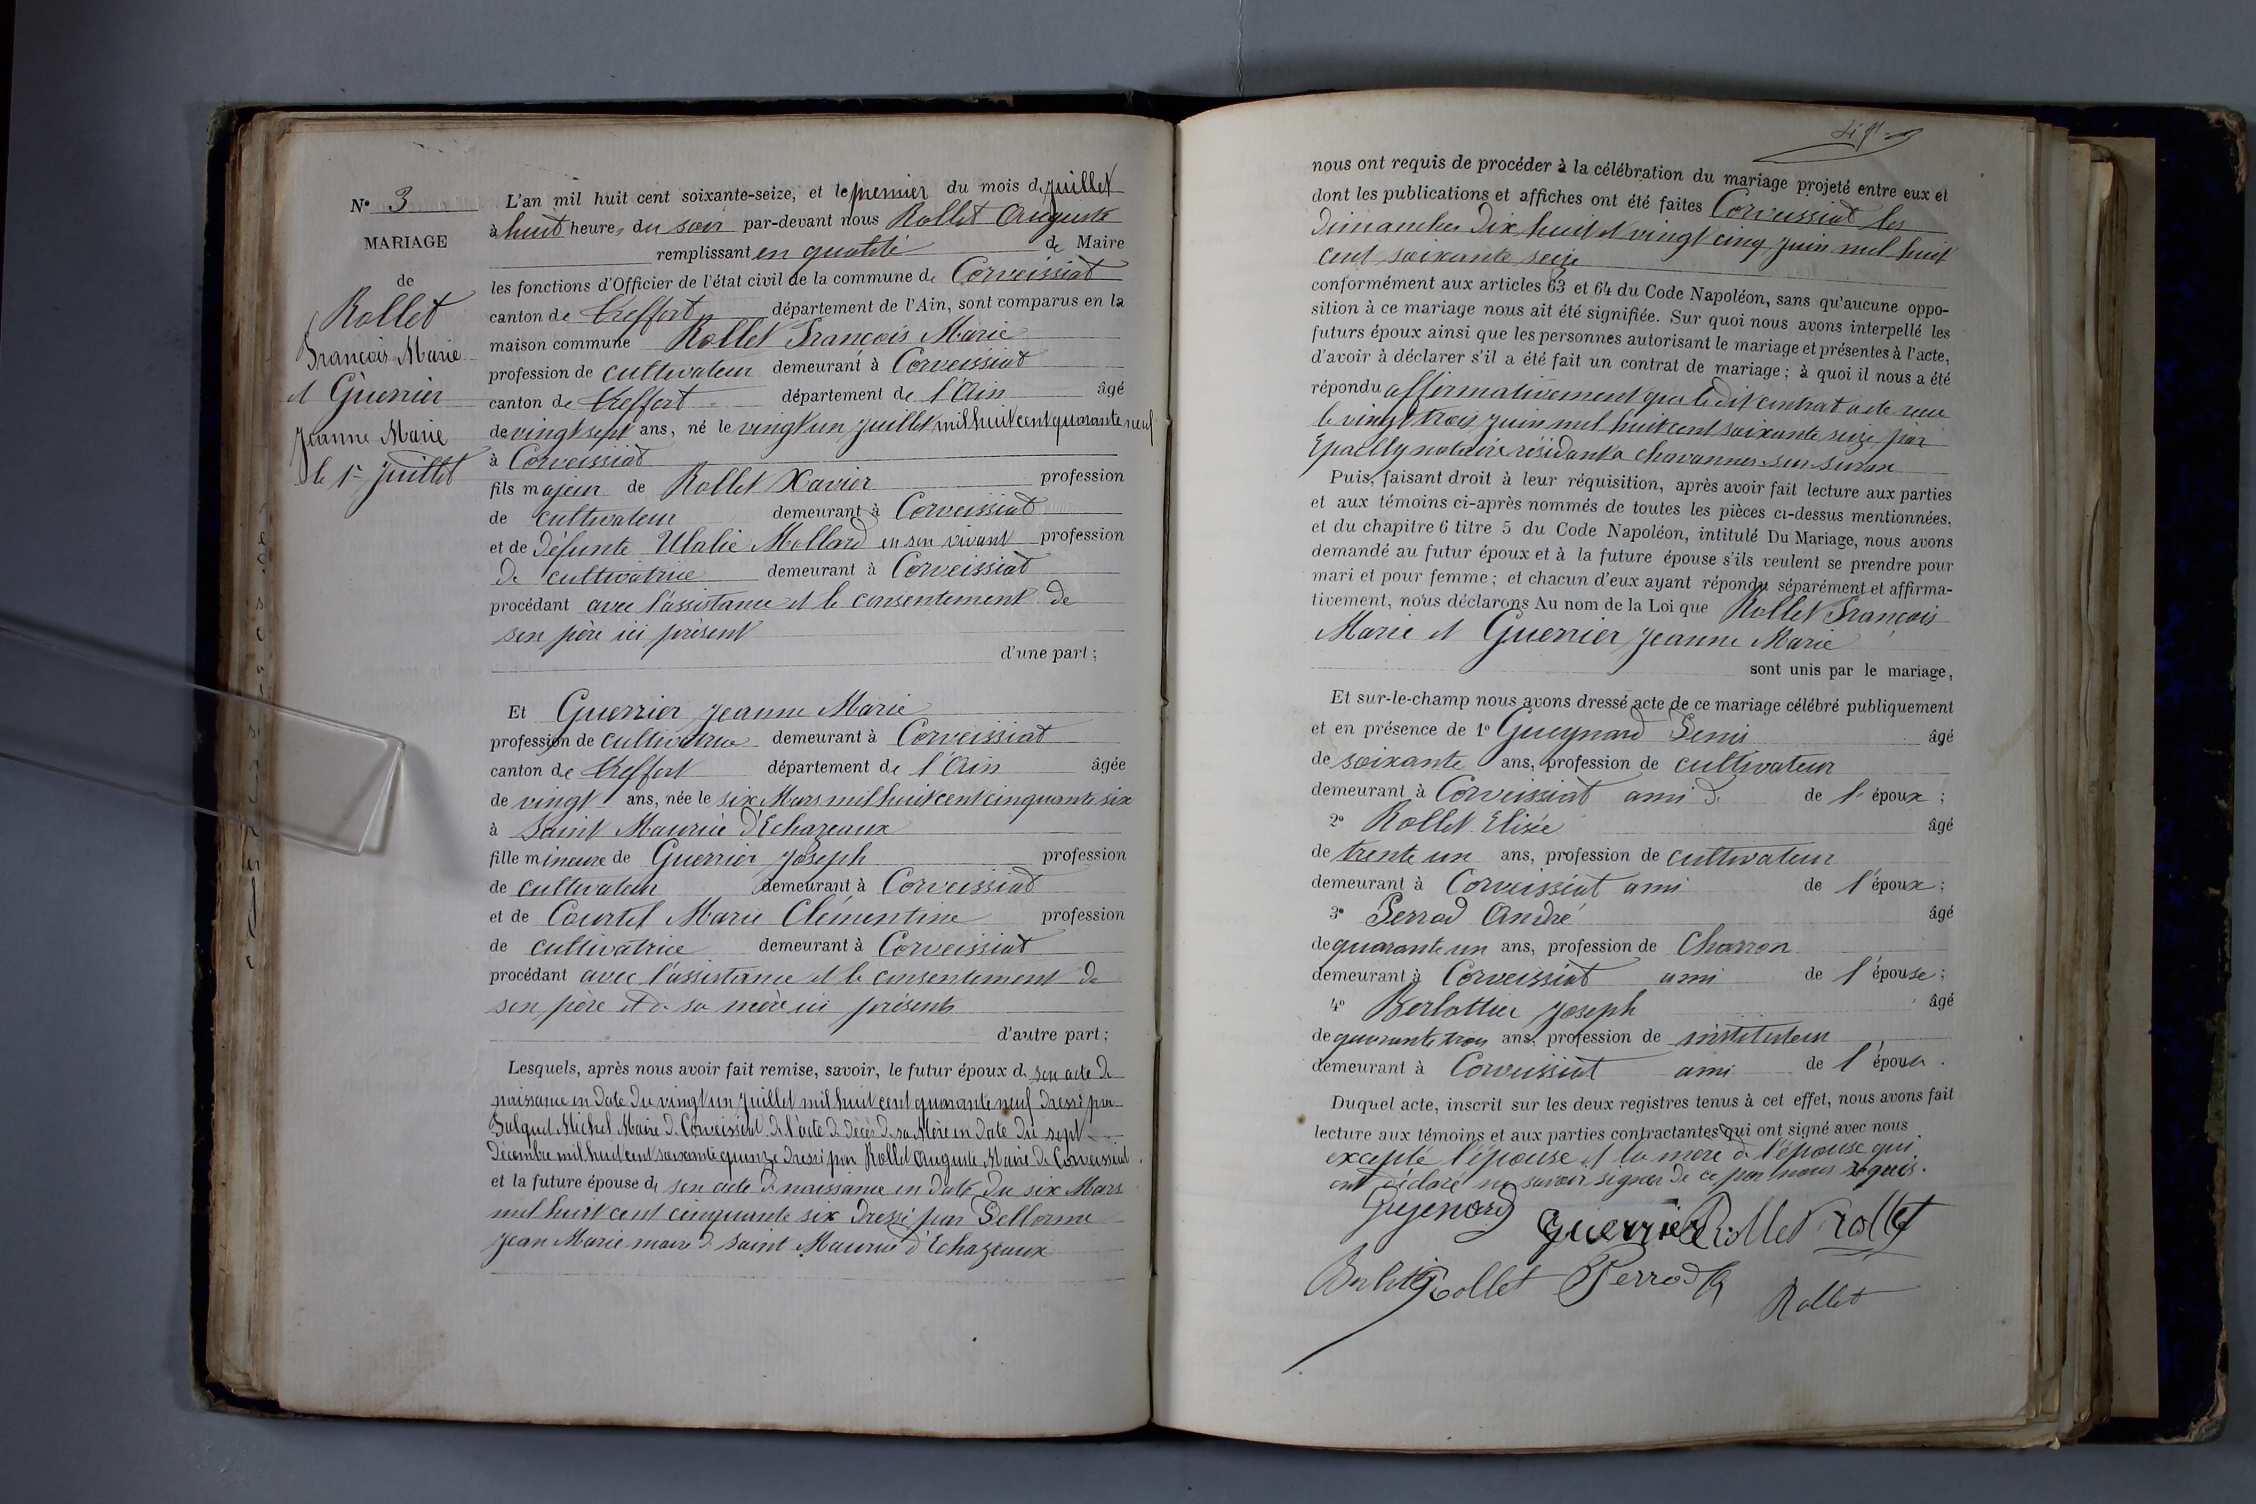 N° 3
MARIAGE
de
Rollet
François Marie
et Guerrier
Jeanne Marie
le 1er Juillet
L'an mil huit cent soixante-seize, et le premier du mois de juillet
à huit heures du soir par-devant nous Rollet Auguste
remplissant en qualité de Maire
les fonctions d'Officier de l'état civil de la commune de Corveissiat
canton de Treffort département de l'Ain, sont comparus en la
maison commune Rollet François Marie
profession de cultivateur demeurant à Corveissiat
canton de Treffort département de l'Ain âgé
de vingt sept ans, né le vingt un juillet mil huit cent quarante neuf
à Corveissiat
fils majeur de Rollet Xavier profession
de cultivateur demeurant à Corveissiat
et de défunte Ulalie Mollard en son vivant profession
de cultivatrice demeurant à Corveissiat
procédant avec l'assistance et le consentement de
son père ici présent
d'une part ;
Et Guerrier Jeanne Marie
profession de cultivatrice demeurant à Corveissiat
canton de Treffort département de l'Ain âgée
de vingt ans, née le six Mars mil huit cent cinquante six
à Saint Maurice d'Echazeaux
fille mineure de Guerrier Joseph profession
de cultivateur demeurant à Corveissiat
et de Courtet Marie Clémentine profession
de cultivatrice demeurant à Corveissiat
procédant avec l'assistance et le consentement de
son père et de sa mère ici présents
d'autre part ;
Lesquels, après nous avoir fait remise, savoir, le futur époux de son acte de
naissance en date du vingt un juillet mil huit cent quarante neuf dressé par
Michel Maire de Corveissiat de l'acte de décès de sa Mère en date du sept
Décembre mil huit cent soixante quinze dressé par Rollet Auguste Maire de Corveissiat
et la future épouse de son acte de naissance en date du six Mars
mil huit cent cinquante six dressé par Dellorme
Jean Marie maire de Saint Maurice d'Echazeaux
nous ont requis de procéder à la célébration du mariage projeté entre eux et
dont les publications et affiches ont été faites Corveissiat les
dimanches dix huit et vingt cinq juin mil huit
cent soixante seize
conformément aux articles 63 et 64 du Code Napoléon, sans qu'aucune oppo-
sition à ce mariage nous ait été signifiée. Sur quoi nous avons interpellé les
futurs époux ainsi que les personnes autorisant le mariage et présentes à l'acte,
d'avoir à déclarer s'il a été fait un contrat de mariage ; à quoi il nous a été
répondu affirmativement que le dit contrat a été reçu
le vingt trois juin mil huit cent soixante seize par
Epailly notaire résidant à Chavannes sur Suran
Puis, faisant droit à leur réquisition, après avoir fait lecture aux parties
et aux témoins ci-après nommés de toutes les pièces ci-dessus mentionnées,
et du chapitre 6 titre 5 du Code Napoléon, intitulé Du Mariage, nous avons
demandé au futur époux et à la future épouse s'ils veulent se prendre pour
mari et pour femme ; et chacun d'eux ayant répondu séparément et affirma-
tivement, nous déclarons Au nom de la Loi que Rollet François
Marie et Guerrier Jeanne Marie
sont unis par le mariage,
Et sur-le-champ nous avons dressé acte de ce mariage célébré publiquement
et en présence de 1° Gueynard Denis âgé
de soixante ans, profession de cultivateur
demeurant à Corveissiat ami de de l' époux ;
2° Rollet Elisée âgé
de trente un ans, profession de cultivateur
demeurant à Corveissiat ami de l'époux ;
3° Perrod André âgé
de quarante un ans, profession de charron
demeurant à Corveissiat ami de l'épouse ;
4° Joseph âgé
de quarante trois ans, profession de instituteur
demeurant à Corveissiat ami de l'épouse.
Duquel acte, inscrit sur les deux registres tenus à cet effet, nous avons fait
lecture aux témoins et aux parties contractantes qui ont signé avec nous
excepté l'épouse et la mère de l'épouse qui
ont déclaré ne savoir signer de ce par nous requis.
Guerrier Rollet rollet
Rollet Perrod
Rollet